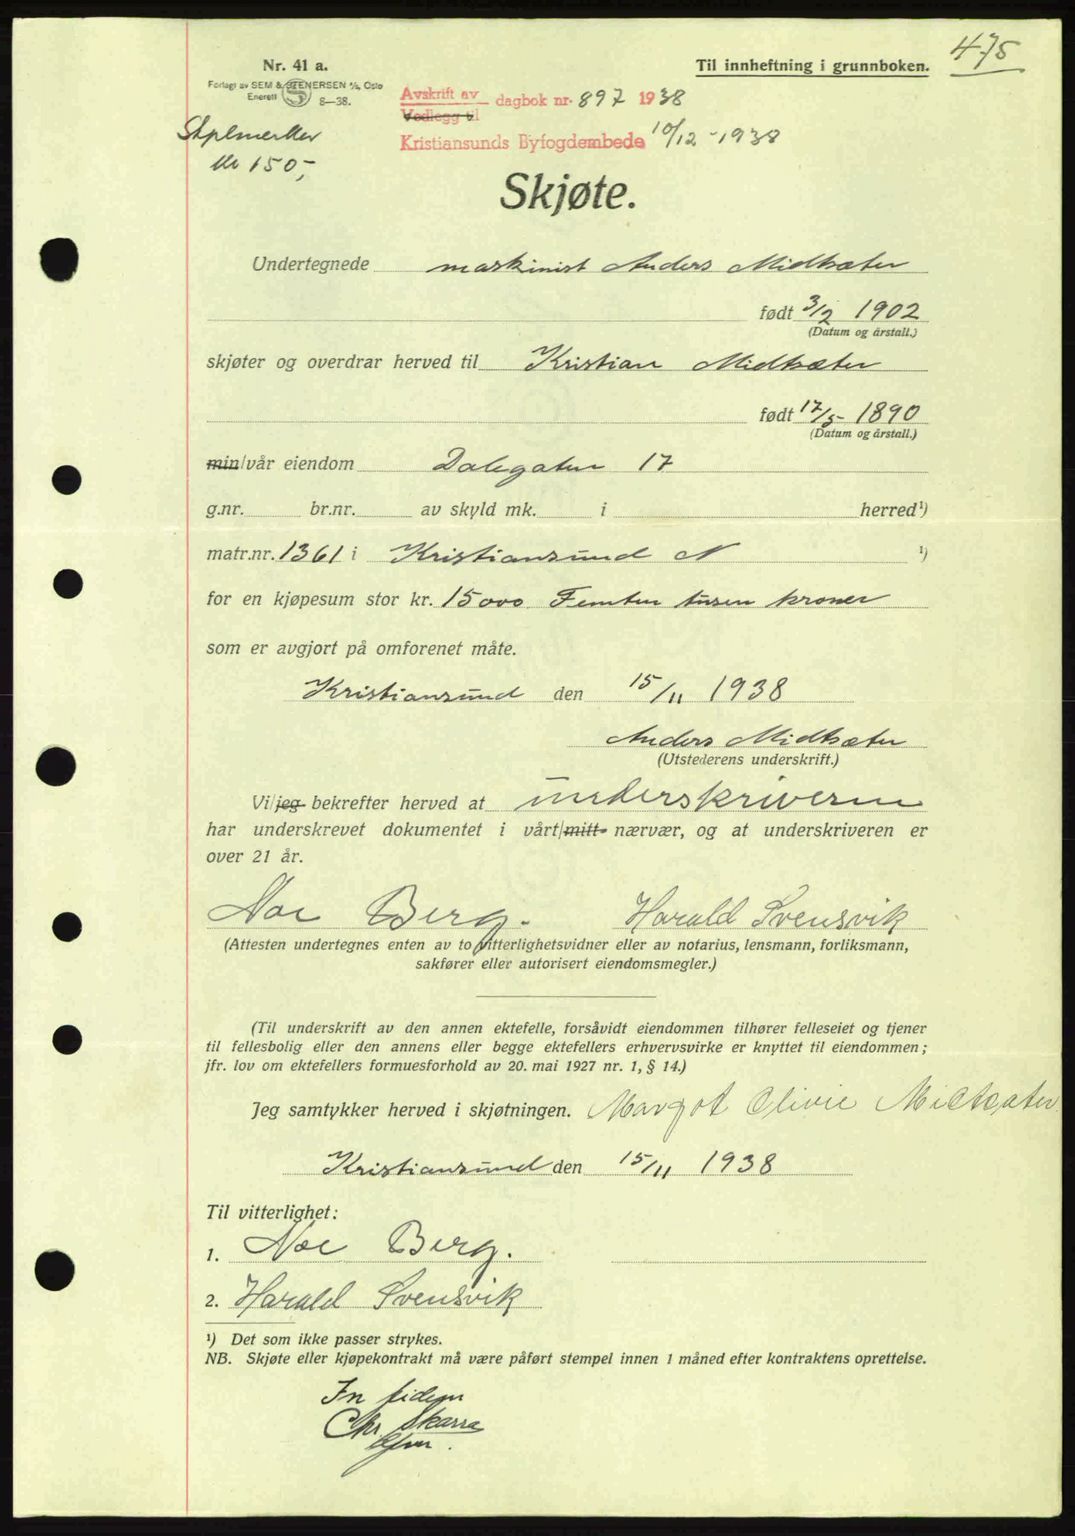 475
Nr. 41 a.
Til innheftning i grunnboken.
Forlagt av SEM & STENERSEN A/S, Oslo
Enerett S 8—38.
Avskrift av
Vedlegg til
dagbok nr. 897 1938
Kristiansunds Byfogdembede 10/12 - 1938
Stplmerker
kr 150,-
Skjøte.
Undertegnede maskinist Anders Midtsæter
født 3/2 1902
(Datum og årstall.)
skjøter og overdrar herved til Kristian Midtsæter
født 17/5- 1890
(Datum og årstall.)
min/vår eiendom Dalegaten 17
g.nr. br.nr. av skyld mk. i herred¹)
matr.nr. 1361 i Kristiansund N ¹)
for en kjøpesum stor kr. 15000 Femten tusen kroner
som er avgjort på omforenet måte.
Kristiansund den 15/11 1938
Anders Midtsæter
(Utstederens underskrift.)
Vi/jeg bekrefter herved at underskriveren
har underskrevet dokumentet i vårt/mitt nærvær, og at underskriveren er
over 21 år.
Noe Berg. Harald Svensvik
(Attesten undertegnes enten av to vitterlighetsvidner eller av notarius, lensmann, forliksmann,
sakfører eller autorisert eiendomsmegler.)
(Til underskrift av den annen ektefelle, forsåvidt eiendommen tilhører felleseiet og tjener
til fellesbolig eller den annens eller begge ektefellers erhvervsvirke er knyttet til eiendommen;
jfr. lov om ektefellers formuesforhold av 20. mai 1927 nr. 1, § 14.)
Jeg samtykker herved i skjøtningen. Margot Olivie Midtsæter
Kristiansund den 15/11 1938
Til vitterlighet:
1. Noe Berg.
2. Harald Svensvik
¹) Det som ikke passer strykes.
NB. Skjøte eller kjøpekontrakt må være påført stempel innen 1 måned efter kontraktens oprettelse.
In fidem
Chr. Skarra